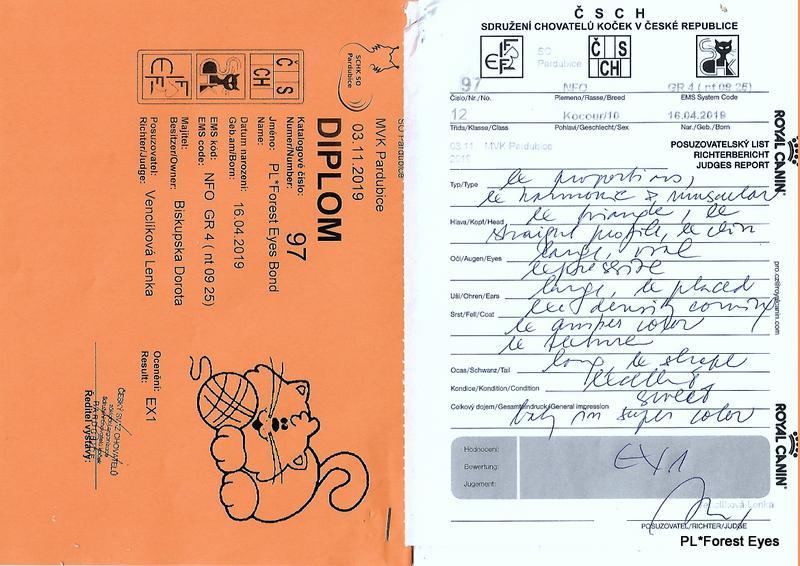 SO Pardubice
MVK Pardubice
03.11.2019
SCHK SO
Pardubice
DIPLOM
Č S
CH
FIFe
Katalogové číslo:
Numer/Number: 97
Jméno: PL*Forest Eyes Bond
Name:
Datum narození: 16.04.2019
Geb.am/Born:
EMS kód: NFO GR 4 ( nt 09 25)
EMS code:
Majitel: Biskupska Dorota
Besitzer/Owner:
Posuzovatel: Venclíková Lenka
Richter/Judge:
Ocenění: EX1
Result:
ČESKÝ SVAZ CHOVATELŮ
PARDUBICE
Ředitel výstavy:
Č S C H
SDRUŽENÍ CHOVATELŮ KOČEK V ČESKÉ REPUBLICE
FIFe
SO
Pardubice
Č S
CH
97 NFO GR 4 ( nt 09 25)
Číslo/Nr./No. Plemeno/Rasse/Breed EMS System Code
12 Kocour/10 16.04.2019
Třída/Klasse/Class Pohlaví/Geschlecht/Sex Nar./Geb./Born
03.11 MVK Pardubice
2019
POSUZOVATELSKÝ LIST
RICHTERBERICHT
JUDGES REPORT
Typ/Type
proportions,
harmonic & muscular
Hlava/Kopf/Head
triangle,
straight profile,
Oči/Augen/Eyes
large, oval
expressive
Uši/Ohren/Ears
large, placed
Srst/Fell/Coat
density
color
texture
Ocas/Schwanz/Tail
long shape
Kondice/Kondition/Condition
excellent
Celkový dojem/Gesamteindruck/General impression
sweet
baby in super color
Hodnocení:
Bewertung: EX1
Jugement:
Venclíková Lenka
POSUZOVATEL/RICHTER/JUDGE
ROYAL CANIN
pro.cz@royalcanin.com
ROYAL CANIN
PL*Forest Eyes